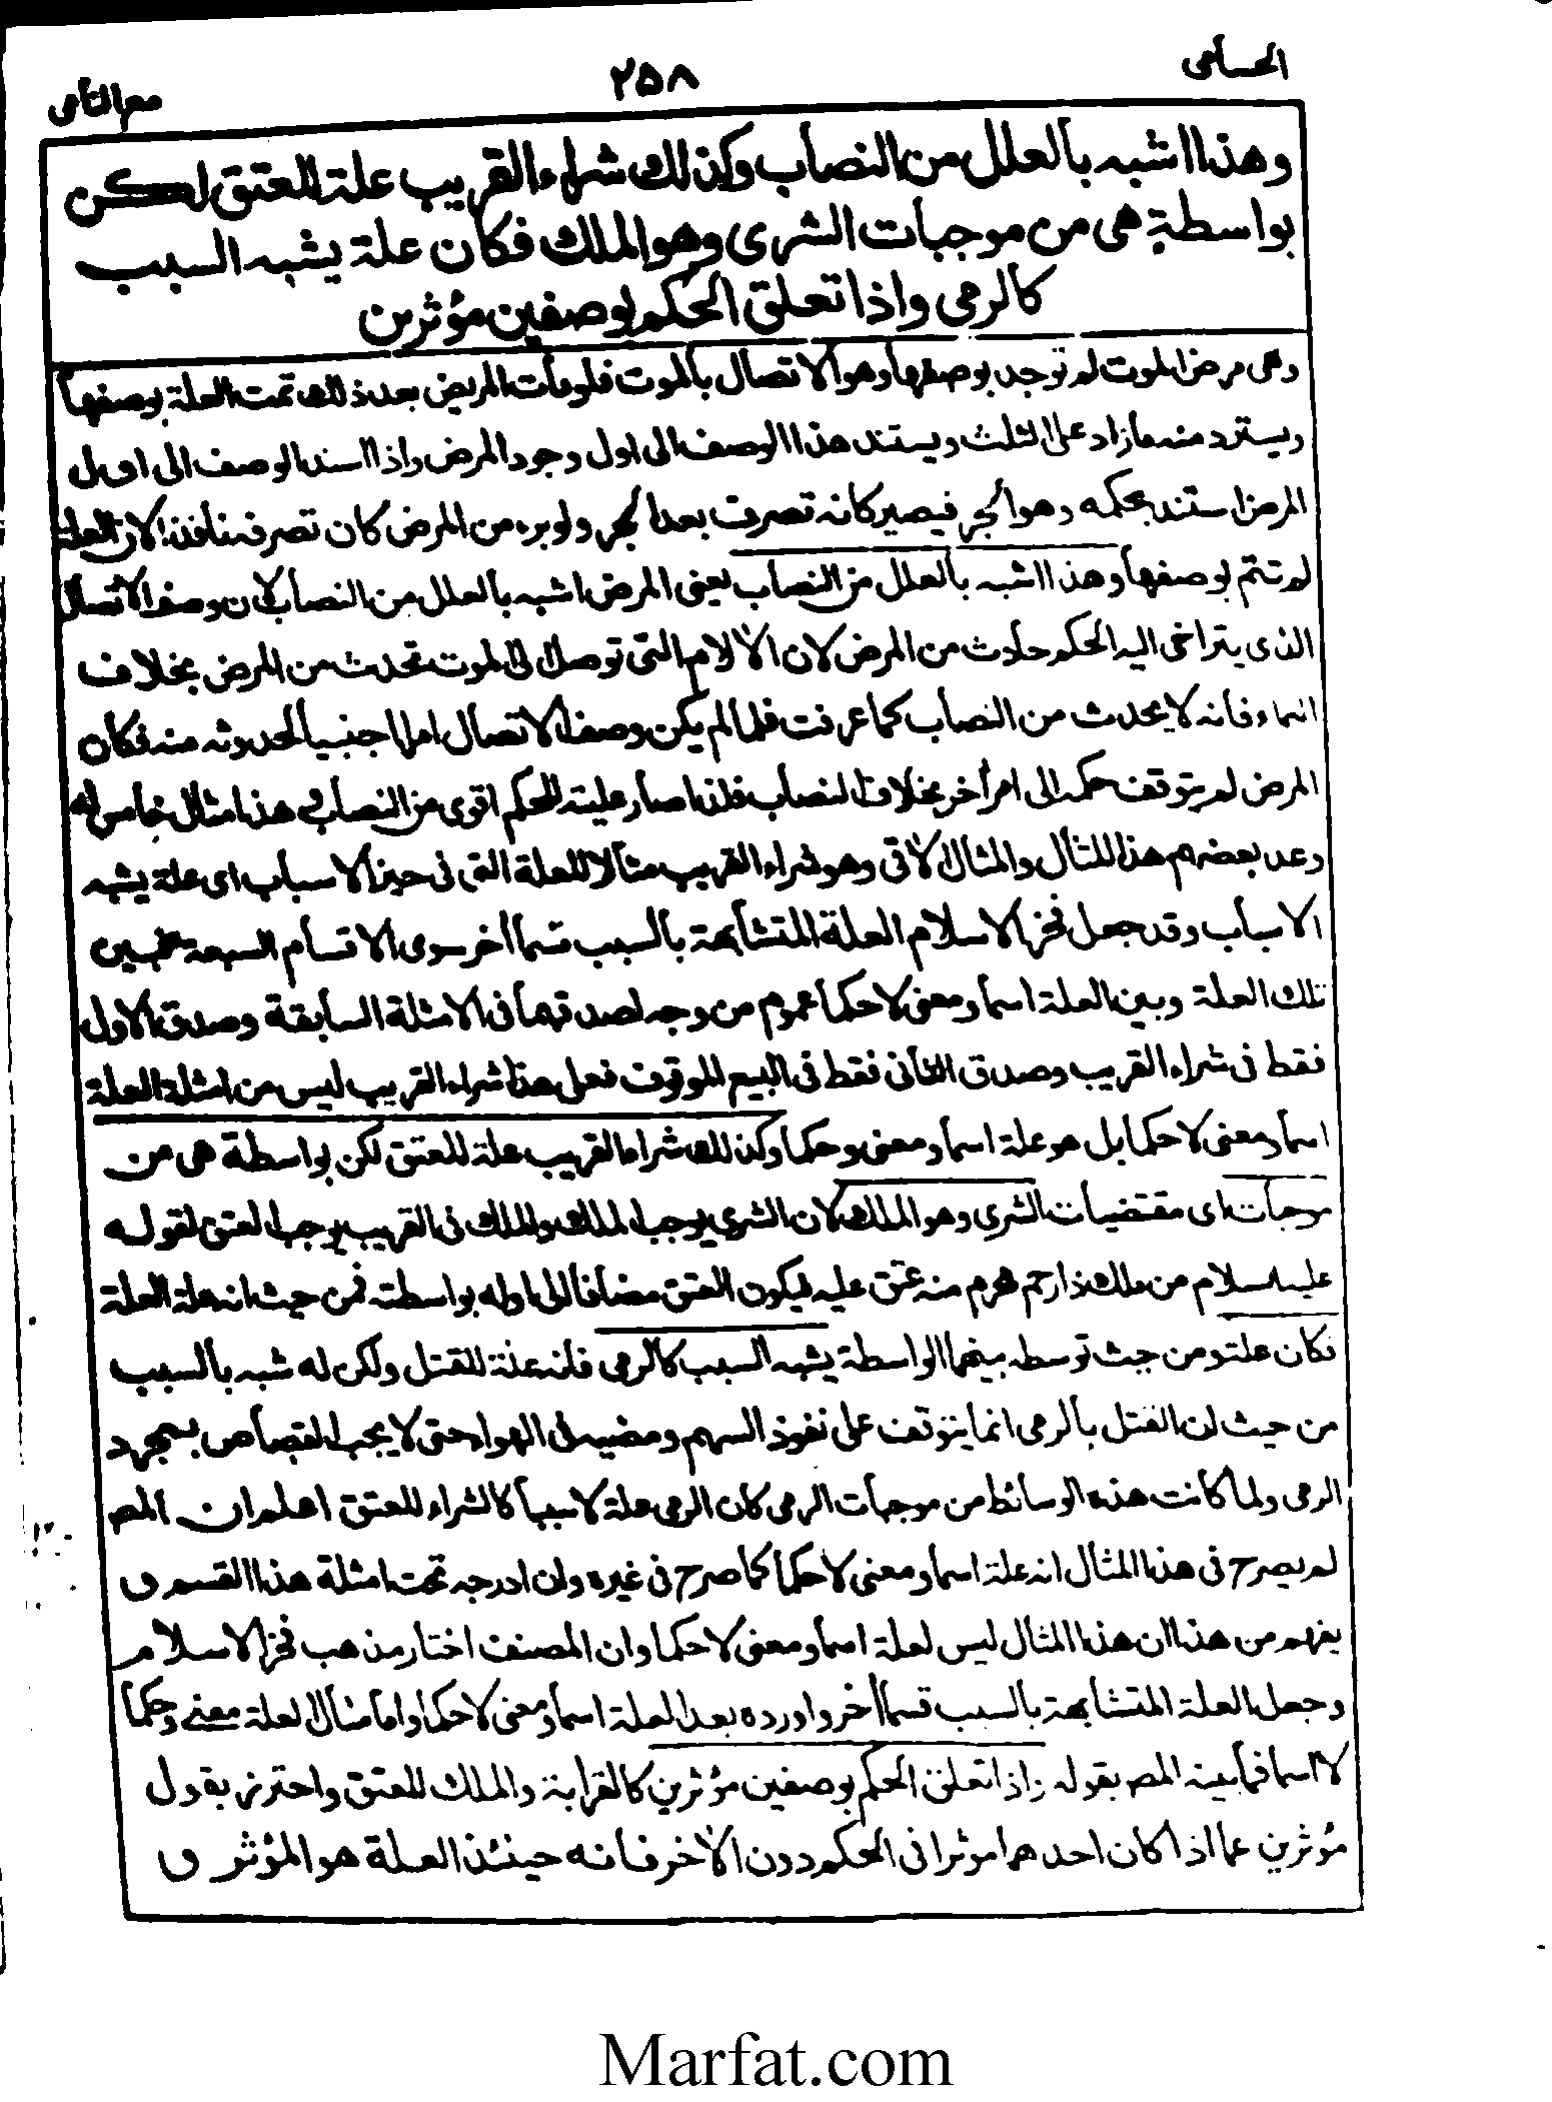 الحسامى
٢٥٨
مع النامى
وهذا اشبه بالعلل من النصاب وكذلك شراء القريب علة للعتق لكن
بواسطة هى من موجبات الشرى وهو الملك فكان علة يشبه السبب
كالرمى واذا تعلق الحكم بوصفين مؤثرين
وهى مرض الموت لم توجد بوصفها وهو الاتصال بالموت فلومات المريض بعد ذلك تمت العلة بوصفها
ويسترد منه مازاد على الثلث ويستند هذا الوصف الى اول وجود المرض واذا اسند الوصف الى اول
المرض استند بحكمه وهو الحجر فيصير كانه تصرف بعد الحجر ولو برء من المرض كان تصرفه نافذا لان العلة
لم تتم بوصفها وهذا اشبه بالعلل من النصاب يعنى المرض اشبه بالعلل من النصاب لان وصف الاتصال
الذى يتراخى اليه الحكم حادث من المرض لان الالام التى توصل الى الموت تحدث من المرض بخلاف
النماء فانه لا يحدث من النصاب كما عرفت فلما لم يكن وصف الاتصال امرا اجنبيا لحدوثه منه فكان
المرض لم يتوقف حكمه الى امر أخر بخلاف النصاب فلذا صار عليته للحكم اقوى من النصاب و هذا مثال خامس له
وعد بعضهم هذا المثال والمثال الاتى وهو شراء القريب مثالا للعلة التى فى حيز الاسباب اى علة يشبه
الاسباب وقد جعل فخر الاسلام العلة المتشابهة بالسبب قسما أخر سوى الاقسام السبعة فبين
تلك العلة وبين العلة اسما ومعنى لا حكما عموم من وجه لصدقهما فى الامثلة السابقة وصدق الاول
فقط فى شراء القريب وصدق الثانى فقط فى البيع الموقوف فعلى هذا شراء القريب ليس من امثلة العلة
اسما ومعنى لا حكما بل هو علة اسما ومعنى وحكما وكذلك شراء القريب علة للعتق لكن بواسطة هى من
موجبات اى مقتضيات الشرى وهو الملك لان الشرى يوجب الملك والملك فى القريب يوجب العتق لقوله
عليه السلام من ملك ذا رحم محرم منه عتق عليه فيكون العتق مضافا الى اوله بواسطته فمن حيث انه علة العلة
فكان علة ومن حيث توسطه بينهما الواسطة يشبه السبب كالرمى فانه علة للقتل ولكن له شبه بالسبب
من حيث ان القتل بالرمى انما يتوقف على نفوذ السهم ومضيه فى الهواء حتى لا يجب القصاص بمجرد
الرمى ولما كانت هذه الوسائط من موجبات الرمى كان الرمى علة لا سببا كالشراء للعتق اعلم ان المص
لم يصرح فى هذا المثال انه علة اسما ومعنى لا حكما كما صرح فى غيره وان ادرجه تحت امثلة هذا القسم و
يفهم من هذا ان هذا المثال ليس لعلة اسما ومعنى لا حكما وان المصنف اختار مذهب فخر الاسلام
وجعل العلة المتشابهة بالسبب قسما أخر واورده بعد العلة اسما ومعنى لا حكما واما مثال العلة معنے وحكما
لا اسما فما بينه المص بقوله واذا تعلق الحكم بوصفين مؤثرين كالقرابة والملك للعتق واحترز بقول
مؤثرين عما اذا كان احدهما مؤثرا فى الحكم دون الأخر فانه حينئذ العلة هو المؤثر و
Marfat.com